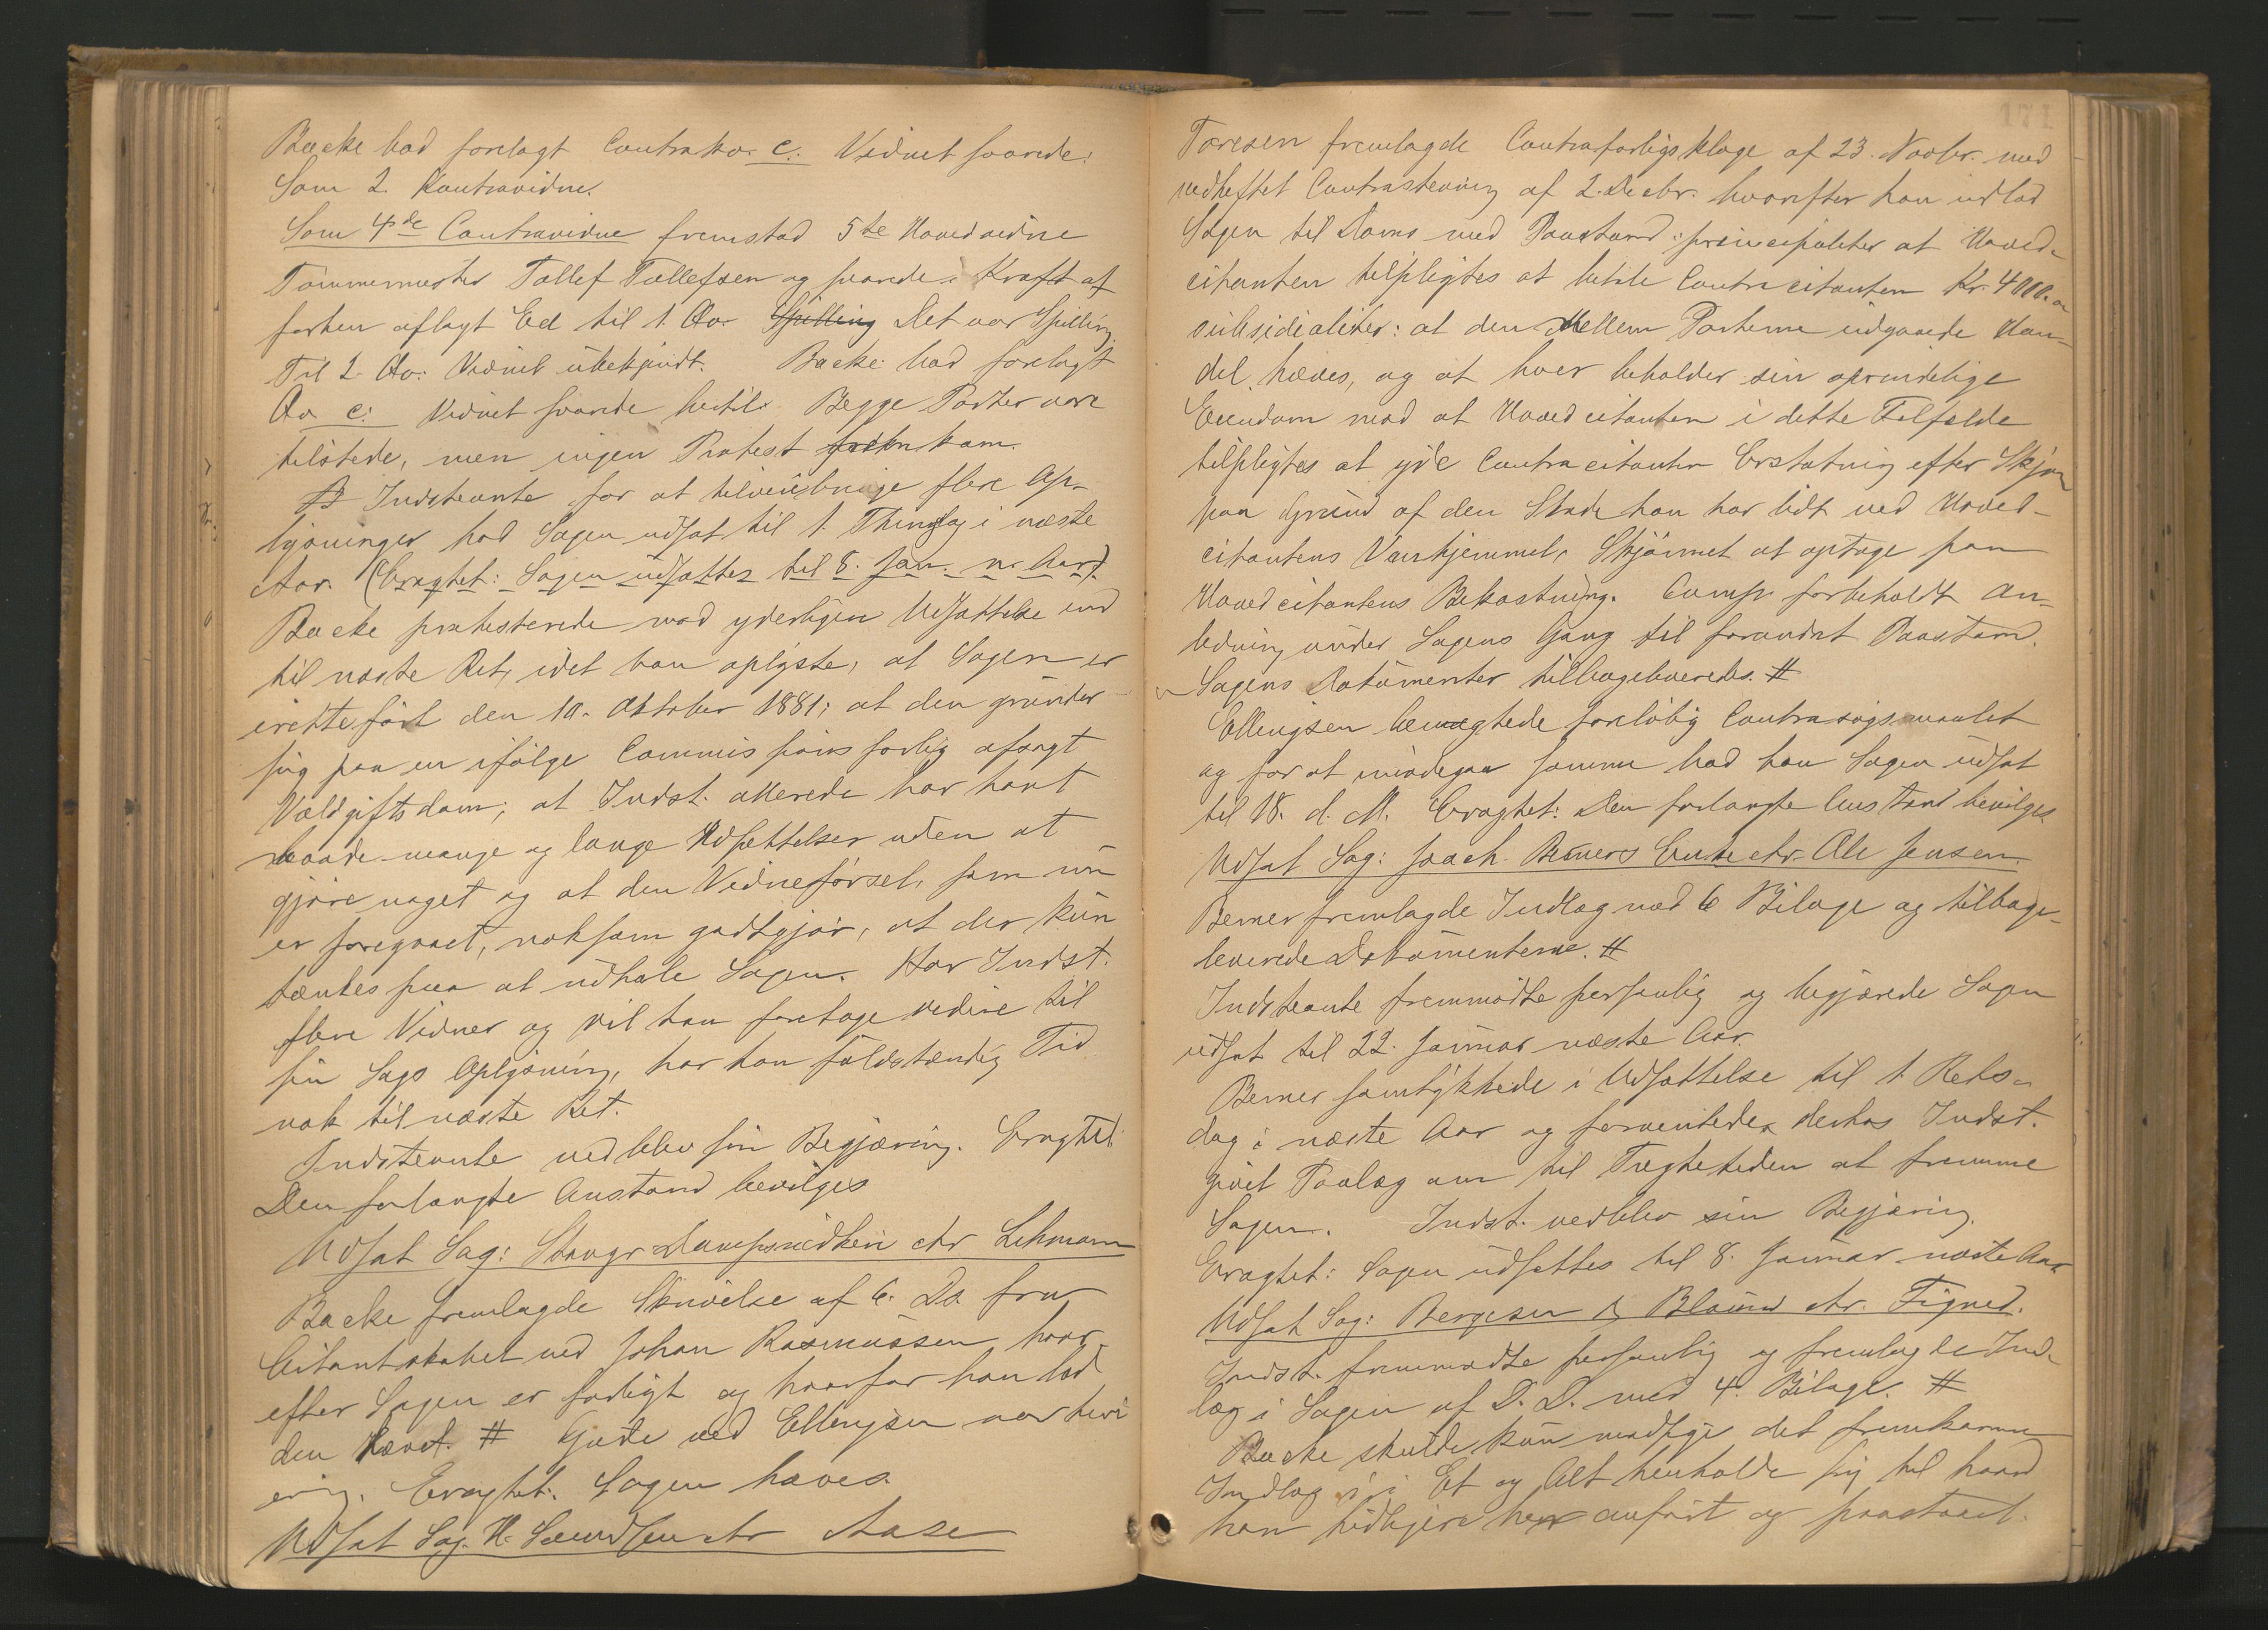 Backe bad forelagt Contraqv. c. Vidnet svarede:
Som 2. Kontravidne.
Som 4de Contravidne fremstod 5te Hovedvidne
Tømmermester Tollef Tollefsen og svarede i Kraft af
forhen aflagt Ed til 1. Qv. Spilling Det var Spilling
Til 2. Qv: Vidnet ubekjendt. Backe bad forelagt
Qv c: Vidnet svarede hertil: Begge Parter vare
tilstede, men ingen Protest frem kom.
Indstevnte for at tilveiebringe flere Op-
lysninger bad Sagen udsat til 1. Thingdag i næste
Aar. (Eragtet: Sagen udsættes til 8. Jan. n. Aar).
Backe protesterede mod yderligere Udsættelse end
til næste Ret, idet han oplyste, at Sagen er
iretteført den 10. Oktober 1881; at den grunder
sig paa en ifølge Commissionsforlig afsagt
Voldgiftsdom; at Indst. allerede har havt
baade mange og lange Udsættelser uden at
gjøre noget og at den Vidneførsel, som nu
er foregaaet, noksom godtgjør, at der kun
tænkes paa at udhale Sagen. Har Indst.
flere Vidner og vil han foretage videre til
sin Sags Oplysning, har han fuldstændig Tid
nok til næste Ret.
Indstevnte vedblev sin Begjæring. Eragtet:
Den forlangte Anstand bevilges
Udsat Sag: Stavgr Dampsmidken ctr Lehmann
Backe fremlagde Skrivelse af 6. Ds. fra
Citantskabet ved Johan Rasmussen hvor-
efter Sagen er forligt og hvorfor han lod
den hævet. # Gude ved Ellingsen var heri
enig. Eragtet: Sagen hæves.
Udsat Sag. H. Svendsen ctr Aase
171
Toresen fremlagde Contraforligsklage af 23. Novbr. med
vedheftet Contrastevning af 2. Decbr. hvorefter han indlod
Sagen til Doms med Paastand: principaliter at Hoved-
citanten tilpligtes at betale Contracitanten Kr. 4000.00
subsidialiter: at den Mellem Parterne indgaaede Han-
del hæves, og at hver beholder sin oprindelige
Eiendom mod at Hovedcitanten i dette Tilfælde
tilpligtes at yde Contracitanten Erstatning efter Skjøn
paa Grund af den Skade han har lidt ved Hoved-
citantens Vanhjemmel, Skjønnet at optage paa
Hovedcitantens Bekostning. Comp. forbeholdt An-
ledning under Sagens Gang til forandret Paastand.
Sagens Dokumenter tilbageleveredes. #
Ellingsen benægtede foreløbig Contrasøgsmaalet
og for at imødegaa samme bad han Sagen udsat
til 18. d. M. Eragtet: Den forlangte Anstand bevilges.
Udsat Sag: Joach. Berners Enke ctr. Ole Jensen.
Berner fremlagde Indlæg med 6 Bilage og tilbage-
leverede Dokumenterne. #
Indstevnte fremmødte personlig og begjærede Sagen
udsat til 22. Januar næste Aar.
Berner samtykkede i Udsættelse til 1. Rets-
dag i næste Aar og forventedes derhos Indst.
givet Paalæg om til Tægtetiden at fremme
Sagen. Indst. vedblev sin Begjæring.
Eragtet: Sagen udsættes til 8. Januar næste Aar
Udsat Sag: Bergesen & Blaaud ctr. Figved.
Indst. fremmødte personlig og fremlagde Ind-
læg i Sagen af D. D. med 4. Bilage. #
Backe skulde kun modsige det fremkomne
Indlæg i Et og Alt henholde sig til hvad
han tidligere har anført og paastaaet.